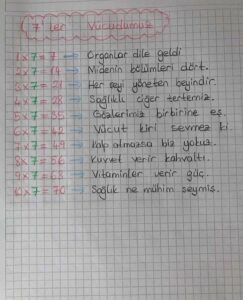 7 ler Vücudumuz
1x7=7 → Organlar dile geldi
2x7=14 → Midenin bölümleri dört.
3x7=21 → Her şeyi yöneten beyindir.
4x7=28 → Sağlıklı ciğer tertemiz.
5x7=35 → Gözlerimiz birbirine eş.
6x7=42 → Vücut kiri sevmez ki
7x7=49 → Kalp olmazsa biz yokuz.
8x7=56 → Kuvvet verir kahvaltı.
9x7=63 → Vitaminler verir güç.
10x7=70 → Sağlık ne mühim şeymiş.